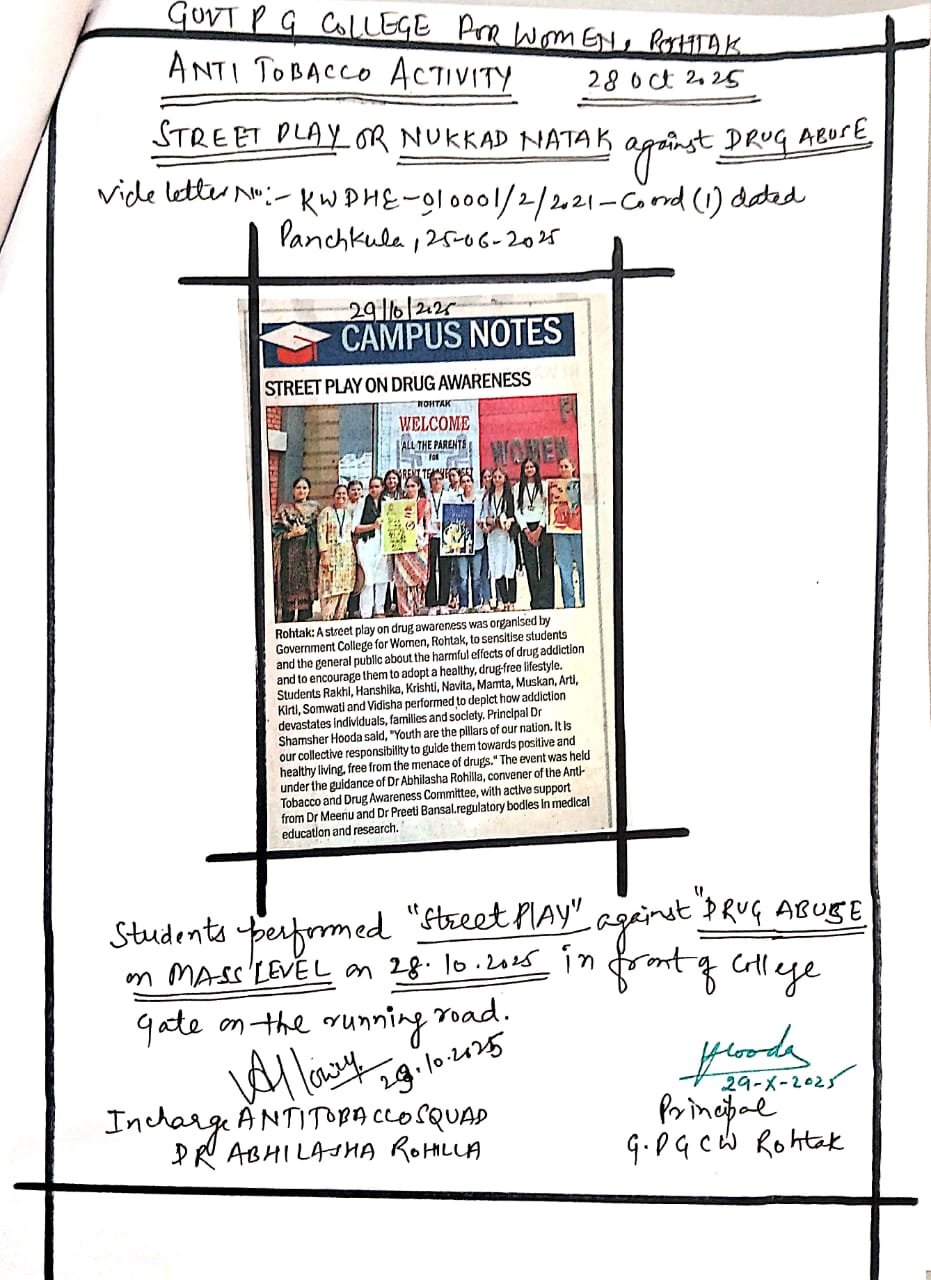 GOVT P G COLLEGE FOR WOMEN, ROHTAK
ANTI TOBACCO ACTIVITY 28 Oct 2025
STREET PLAY OR NUKKAD NATAK against DRUG ABUSE
vide letter No:- KWDHE-010001/2/2021-Coord (1) dated
Panchkula, 25-06-2025
29/10/2025
CAMPUS NOTES
STREET PLAY ON DRUG AWARENESS
ROHTAK
WELCOME
ALL THE PARENTS
FOR
WOMEN
Rohtak: A street play on drug awareness was organised by
Government College for Women, Rohtak, to sensitise students
and the general public about the harmful effects of drug addiction
and to encourage them to adopt a healthy, drug-free lifestyle.
Students Rakhi, Hanshika, Krishti, Navita, Mamta, Muskan, Arti,
Kirti, Somwati and Vidisha performed to depict how addiction
devastates individuals, families and society. Principal Dr
Shamsher Hooda said, "Youth are the pillars of our nation. It is
our collective responsibility to guide them towards positive and
healthy living, free from the menace of drugs." The event was held
under the guidance of Dr Abhilasha Rohilla, convener of the Anti-
Tobacco and Drug Awareness Committee, with active support
from Dr Meenu and Dr Preeti Bansal.regulatory bodies in medical
education and research.
Students performed "Street PLAY" against "DRUG ABUSE
on MASS LEVEL on 28.10.2025 in front of College
gate on the running road.
29.10.2025
Hooda
29-X-2025
Incharge ANTITOBACCO SQUAD
DR ABHILASHA ROHILLA
Principal
G.P G C W Rohtak